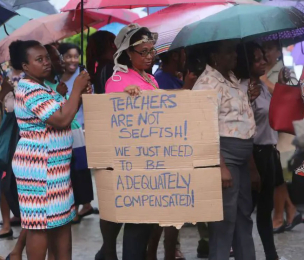 TEACHERS
ARE NOT
SELFISH!
WE JUST NEED
TO BE
ADEQUATELY
COMPENSATED!